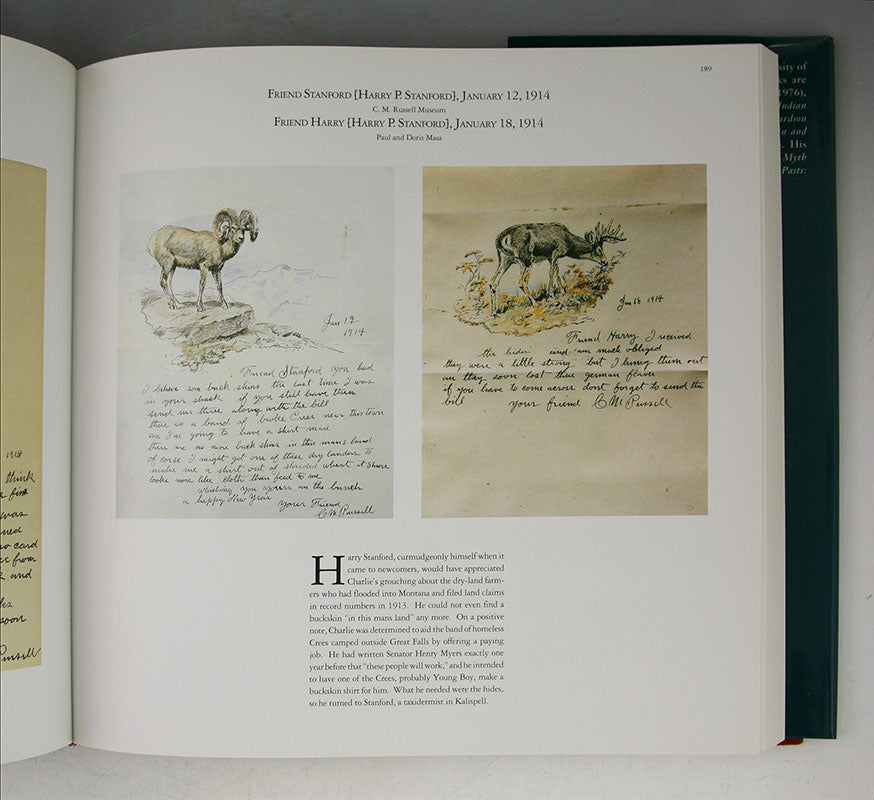 189
FRIEND STANFORD [HARRY P. STANFORD], JANUARY 12, 1914
C. M. Russell Museum
FRIEND HARRY [HARRY P. STANFORD], JANUARY 18, 1914
Paul and Doris Masa
Jan 12
1914
Friend Stanford You had
I believe som buck skins the last time I was
in your shack if you still have them
send me three along with the bill
there is a band of broke Crees near this town
an I'm going to have a shirt mad
there are no more buck skins in this mans land
of corse I might get one of these dry landers to
make me a shirt out of shreded wheat it shure
looks more like cloth than feed to me
whishing you yours an the bunch
a happy New Year
your Friend
C M Russell
Jan 18 1914
Friend Harry I received
the hides and am much obliged
they were a little strong but I hung them out
an they soon lost thee german flavor
if you have to come across dont forget to send the
bill your friend C M Russell
Harry Stanford, curmudgeonly himself when it
came to newcomers, would have appreciated
Charlie's grouching about the dry-land farm-
ers who had flooded into Montana and filed land claims
in record numbers in 1913. He could not even find a
buckskin "in this mans land" any more. On a positive
note, Charlie was determined to aid the band of homeless
Crees camped outside Great Falls by offering a paying
job. He had written Senator Henry Myers exactly one
year before that "these people will work," and he intended
to have one of the Crees, probably Young Boy, make a
buckskin shirt for him. What he needed were the hides,
so he turned to Stanford, a taxidermist in Kalispell.
1914
think
was
card
from
and
soon
Russell
sity of
ks are
1976),
Indian
ardson
n and
. His
Myth
Pasts: